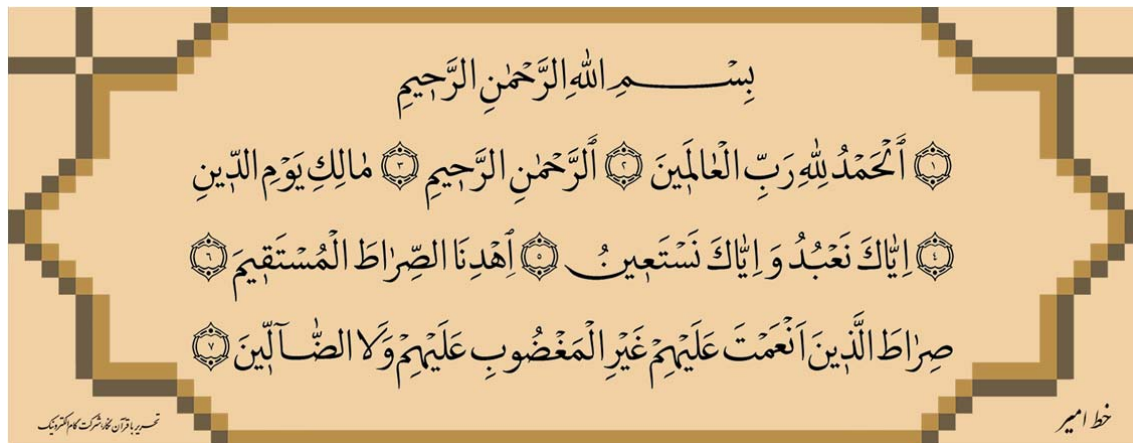 بِسْمِ اللهِ الرَّحْمٰنِ الرَّحِيمِ
۱ اَلْحَمْدُ لِلّٰهِ رَبِّ الْعٰالَمِينَ ۲ اَلرَّحْمٰنِ الرَّحِيمِ ۳ مٰالِكِ يَوْمِ الدِّينِ
۴ اِيّٰاكَ نَعْبُدُ وَ اِيّٰاكَ نَسْتَعِينُ ۵ اِهْدِنَا الصِّرٰاطَ الْمُسْتَقِيمَ ۶
صِرٰاطَ الَّذِينَ اَنْعَمْتَ عَلَيْهِمْ غَيْرِ الْمَغْضُوبِ عَلَيْهِمْ وَلَا الضّٰآلِّينَ ۷
خط امیر
تحریر با قرآن نگار شرکت کام الکترونیک